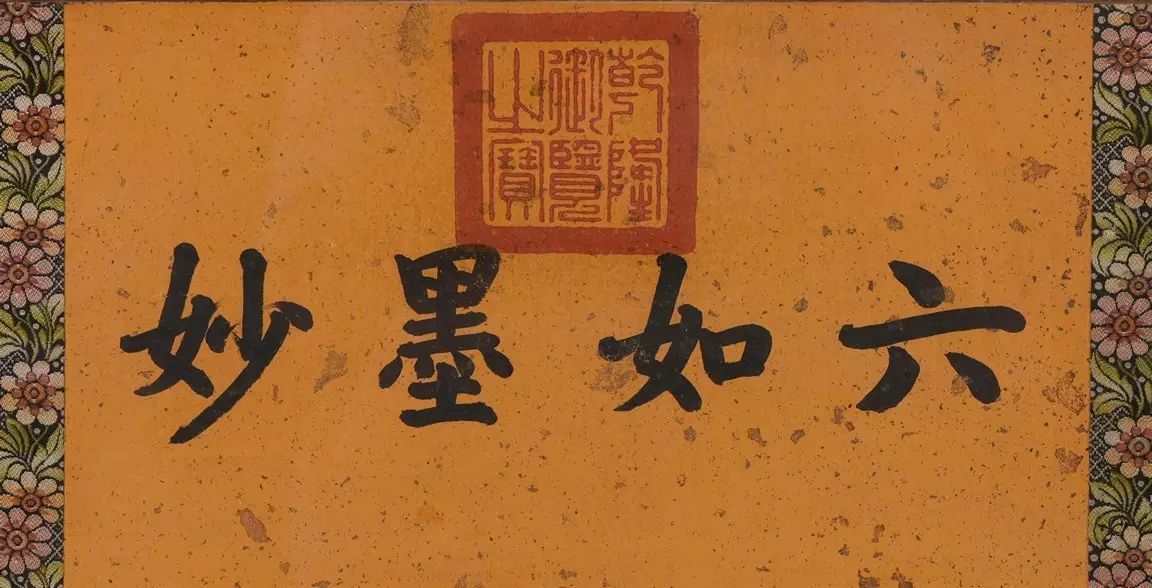 乾隆
御覽
之寶
六如墨妙